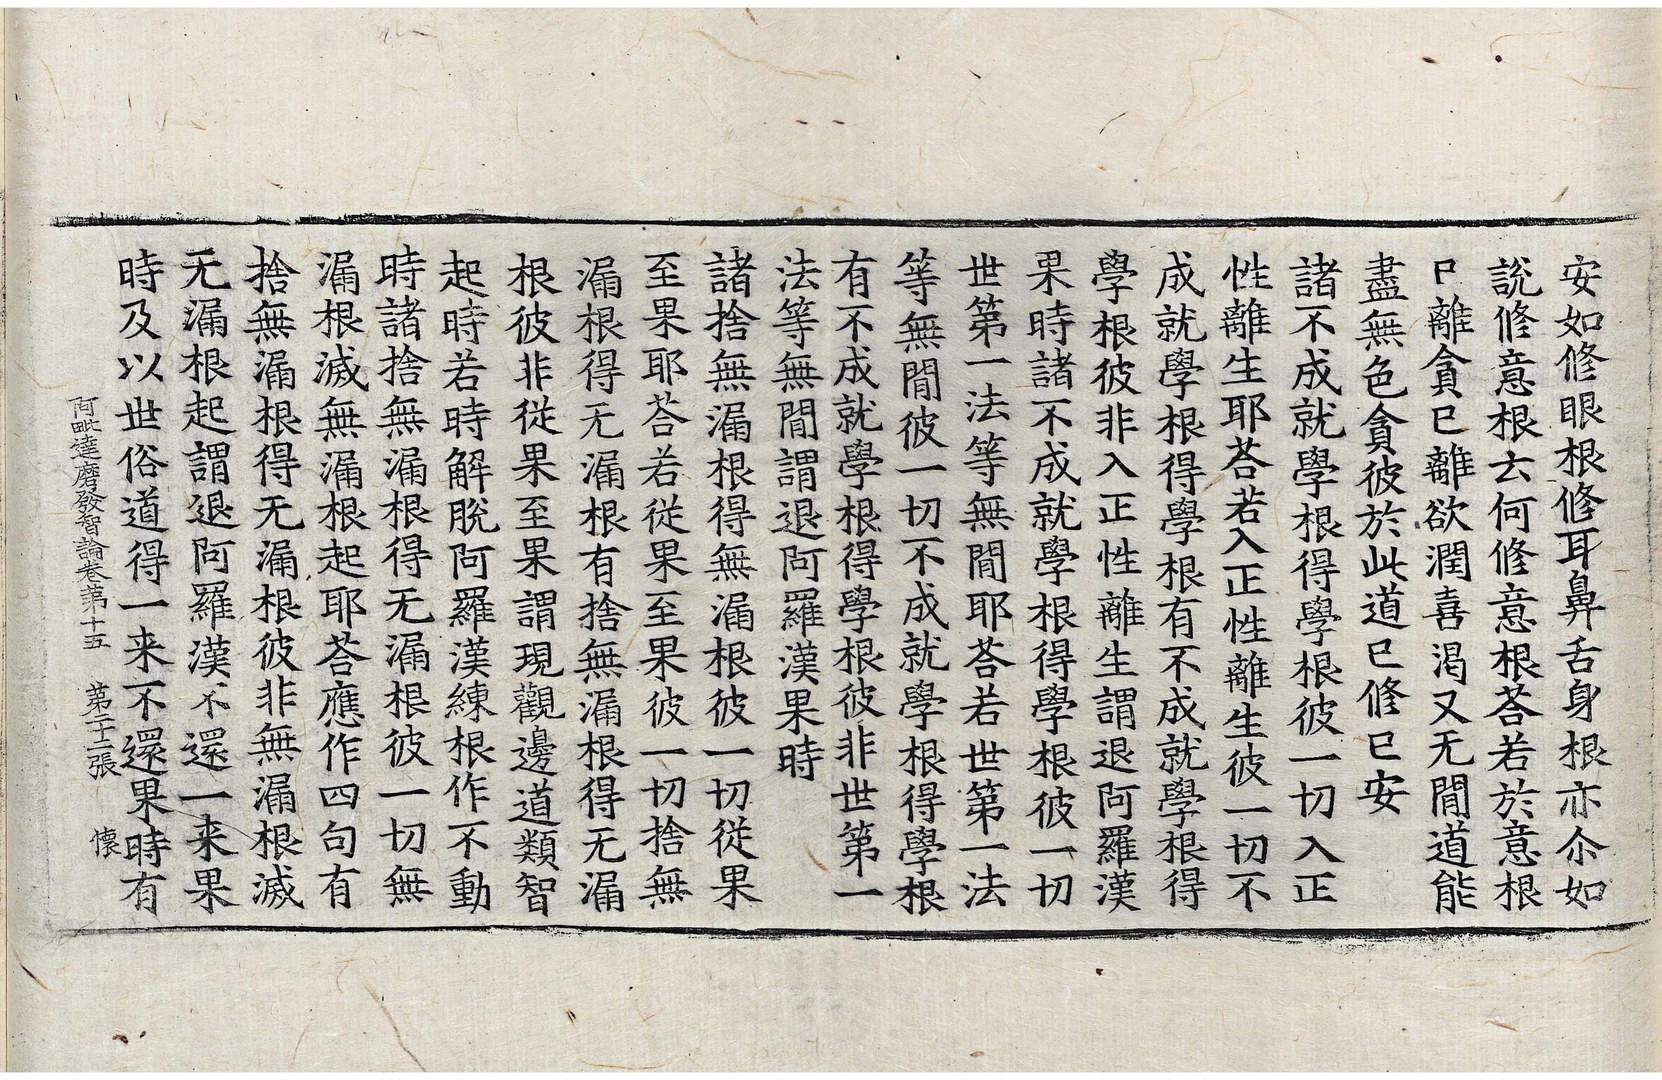 安如修眼根修耳鼻舌身根亦尒如
說修意根云何修意根荅若於意根
已離貪已離欲潤喜渴又无間道能
盡無色貪彼於此道已修已安
諸不成就學根得學根彼一切入正
性離生耶荅若入正性離生彼一切不
成就學根得學根有不成就學根得
學根彼非入正性離生謂退阿羅漢
果時諸不成就學根得學根彼一切
世第一法等無間耶荅若世第一法
等無間彼一切不成就學根得學根
有不成就學根得學根彼非世第一
法等無間謂退阿羅漢果時
諸捨無漏根得無漏根彼一切從果
至果耶荅若從果至果彼一切捨無
漏根得无漏根有捨無漏根得无漏
根彼非從果至果謂現觀邊道類智
起時若時解脫阿羅漢練根作不動
時諸捨無漏根得无漏根彼一切無
漏根滅無漏根起耶荅應作四句有
捨無漏根得无漏根彼非無漏根滅
无漏根起謂退阿羅漢不還一来果
時及以世俗道得一来不還果時有
阿毗達磨發智論卷第十五 第二十二張 懷